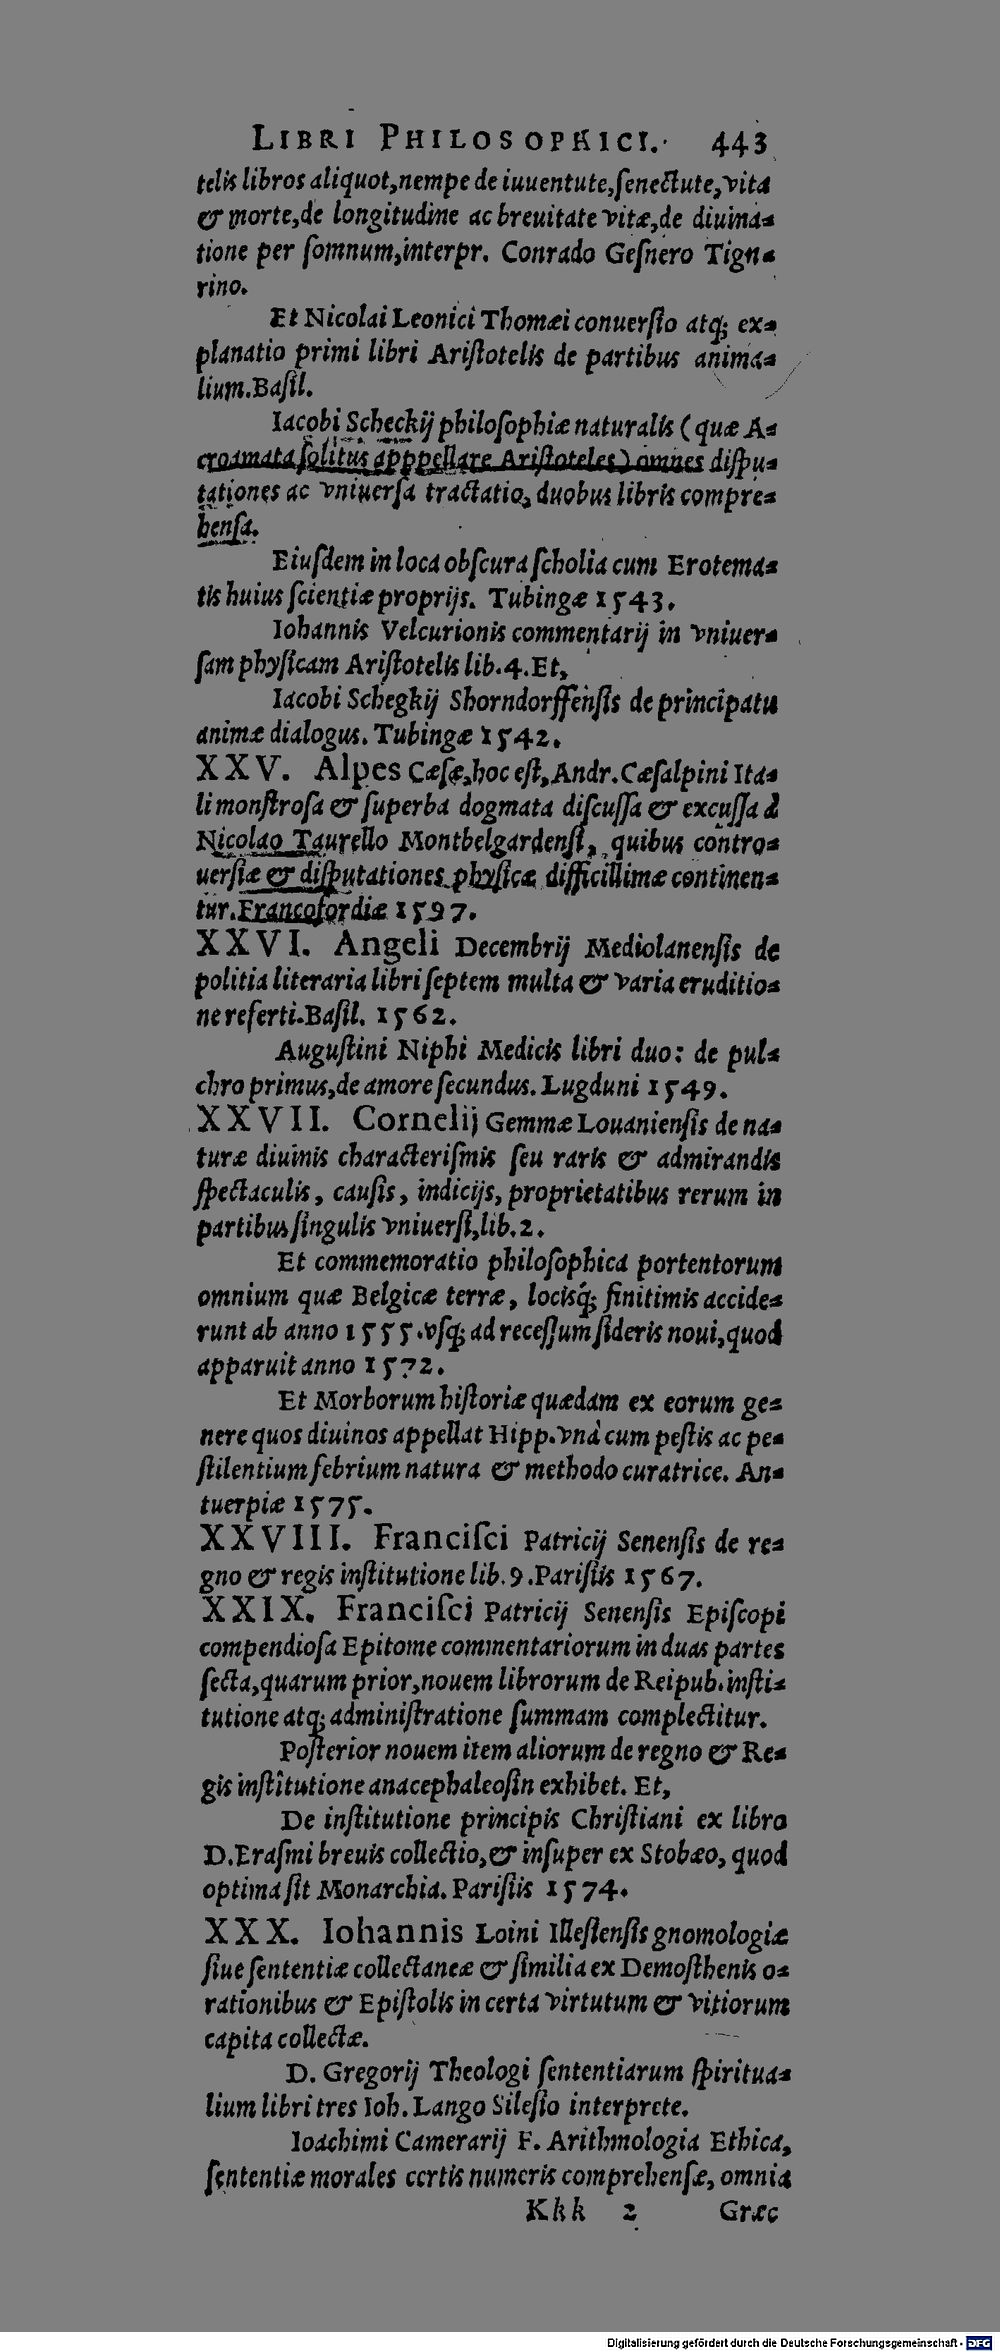 LIBRI PHILOSOPHICI. 443
telis libros aliquot, nempe de iuuentute, ſenectute, vita
& morte, de longitudine ac breuitate vitæ, de diuina-
tione per ſomnum, interpr. Conrado Geſnero Tign-
rino.
Et Nicolai Leonici Thomæi conuerſio atq; ex-
planatio primi libri Ariſtotelis de partibus anima-
lium. Baſil.
Iacobi Scheckij philoſophiæ naturalis (quæ A-
croamata ſolitus apppellare Ariſtoteles) omnes diſpu-
tationes ac vniuerſa tractatio, duobus libris compre-
henſa.
Eiuſdem in loca obſcura ſcholia cum Erotema-
tis huius ſcientiæ proprijs. Tubingæ 1543.
Iohannis Velcurionis commentarij in vniuer-
ſam phyſicam Ariſtotelis lib. 4. Et,
Iacobi Schegkij Shorndorffenſis de principatu
animæ dialogus. Tubingæ 1542.
XXV. Alpes Cæſæ, hoc eſt, Andr. Cæſalpini Ita-
li monſtroſa & ſuperba dogmata diſcuſſa & excuſſa à
Nicolao Taurello Montbelgardenſi, quibus contro-
uerſiæ & diſputationes phyſicæ difficillimæ continen-
tur. Francofordiæ 1597.
XXVI. Angeli Decembrij Mediolanenſis de
politia literaria libri ſeptem multa & varia eruditio-
ne referti. Baſil. 1562.
Auguſtini Niphi Medicis libri duo: de pul-
chro primus, de amore ſecundus. Lugduni 1549.
XXVII. Cornelij Gemmæ Louanienſis de na-
turæ diuinis characteriſmis ſeu raris & admirandis
ſpectaculis, cauſis, indicijs, proprietatibus rerum in
partibus ſingulis vniuerſi, lib. 2.
Et commemoratio philoſophica portentorum
omnium quæ Belgicæ terræ, locisq́; finitimis accide-
runt ab anno 1555. vſq; ad receſſum ſideris noui, quod
apparuit anno 1572.
Et Morborum hiſtoriæ quædam ex eorum ge-
nere quos diuinos appellat Hipp. vnà cum peſtis ac pe-
ſtilentium febrium natura & methodo curatrice. An-
tuerpiæ 1575.
XXVIII. Franciſci Patricij Senenſis de re-
gno & regis inſtitutione lib. 9. Pariſiis 1567.
XXIX. Franciſci Patricij Senenſis Epiſcopi
compendioſa Epitome commentariorum in duas partes
ſecta, quarum prior, nouem librorum de Reipub. inſti-
tutione atq; adminiſtratione ſummam complectitur.
Poſterior nouem item aliorum de regno & Re-
gis inſtitutione anacephaleoſin exhibet. Et,
De inſtitutione principis Chriſtiani ex libro
D. Eraſmi breuis collectio, & inſuper ex Stobæo, quod
optima ſit Monarchia. Pariſiis 1574.
XXX. Iohannis Loini Illeſtenſis gnomologiæ
ſiue ſententiæ collectaneæ & ſimilia ex Demoſthenis o-
rationibus & Epiſtolis in certa virtutum & vitiorum
capita collectæ.
D. Gregorij Theologi ſententiarum ſpiritua-
lium libri tres Ioh. Lango Sileſio interprete.
Ioachimi Camerarij F. Arithmologia Ethica,
ſententiæ morales certis numeris comprehenſæ, omnia
Kkk 2 Græc
Digitalisierung gefördert durch die Deutsche Forschungsgemeinschaft - DFG